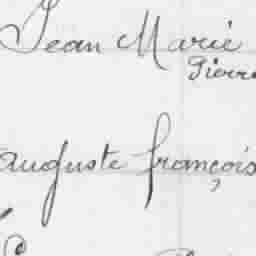 Jean Marie
Pierre
auguste françois